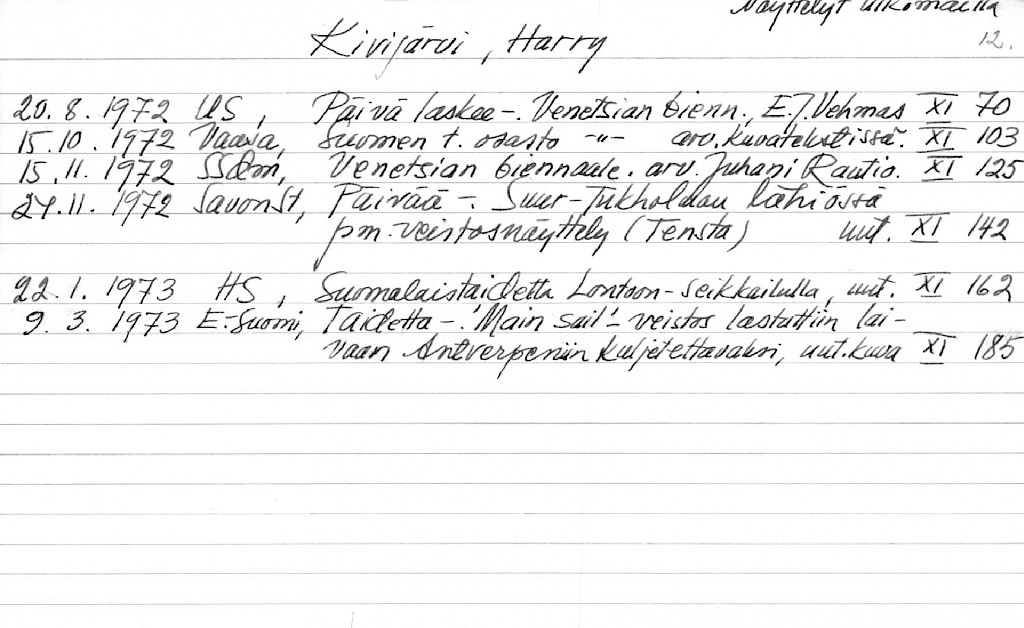 Näyttelyt ulkomailla
Kivijärvi, Harry 12.
20.8.1972 US, Päivä laskee-. Venetsian bienn., E.J.Vehmas XI 70
15.10.1972 Vaasa, Suomen t. osasto -"- arv. kuvatekstissä. XI 103
15.11.1972 SSdm, Venetsian biennaale. arv. Juhani Rautio. XI 125
24.11.1972 SavonSt, Päivää -. Suur-Tukholman lähiössä
pm. veistosnäyttely (Tensta) uut. XI 142
22.1.1973 HS, Suomalaistaidetta Lontoon-seikkailulla, uut. XI 162
9.3.1973 E-Suomi, Taidetta-. 'Main sail'- veistos lastattiin lai-
vaan Antverpeniin kuljetettavaksi, uut. kuva XI 185